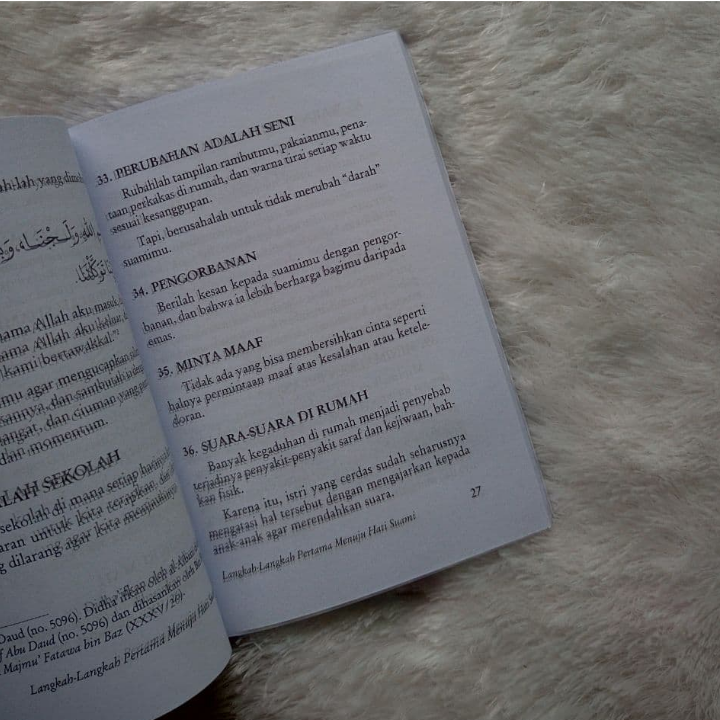 ah-lah yang dimo
الله وَلَجْنَا، وَبِ
تَوَكَّلْنَا.
nama Allah aku masuk,
nama Allah aku
kami bertawakkal."
mu agar mengucapkan
sannya, dan santunlah
angat, dan ciuman yang
dan momentum.
LAH SEKOLAH
sekolah di mana setiap harinya
aran untuk kita terapkan, dan
g dilarang agar kita menjauhinya
Daud (no. 5096). Didha'ifkan oleh al-Albani
f Abu Daud (no. 5096) dan dihasankan oleh
Majmu' Fatawa bin Baz (XXXV/26).
Langkah-Langkah Pertama Menuju Hati
33. PERUBAHAN ADALAH SENI
Rubahlah tampilan rambutmu, pakaianmu, pena-
taan perkakas di rumah, dan warna tirai setiap waktu
sesuai kesanggupan.
Tapi, berusahalah untuk tidak merubah "darah"
suamimu.
34. PENGORBANAN
Berilah kesan kepada suamimu dengan pengor-
banan, dan bahwa ia lebih berharga bagimu daripada
emas.
35. MINTA MAAF
Tidak ada yang bisa membersihkan cinta seperti
halnya permintaan maaf atas kesalahan atau ketele-
doran.
36. SUARA-SUARA DI RUMAH
Banyak kegaduhan di rumah menjadi penyebab
terjadinya penyakit-penyakit saraf dan kejiwaan, bah-
kan fisik.
Karena itu, istri yang cerdas sudah seharusnya
mengatasi hal tersebut dengan mengajarkan kepada
anak-anak agar merendahkan suara.
Langkah-Langkah Pertama Menuju Hati Suami
27